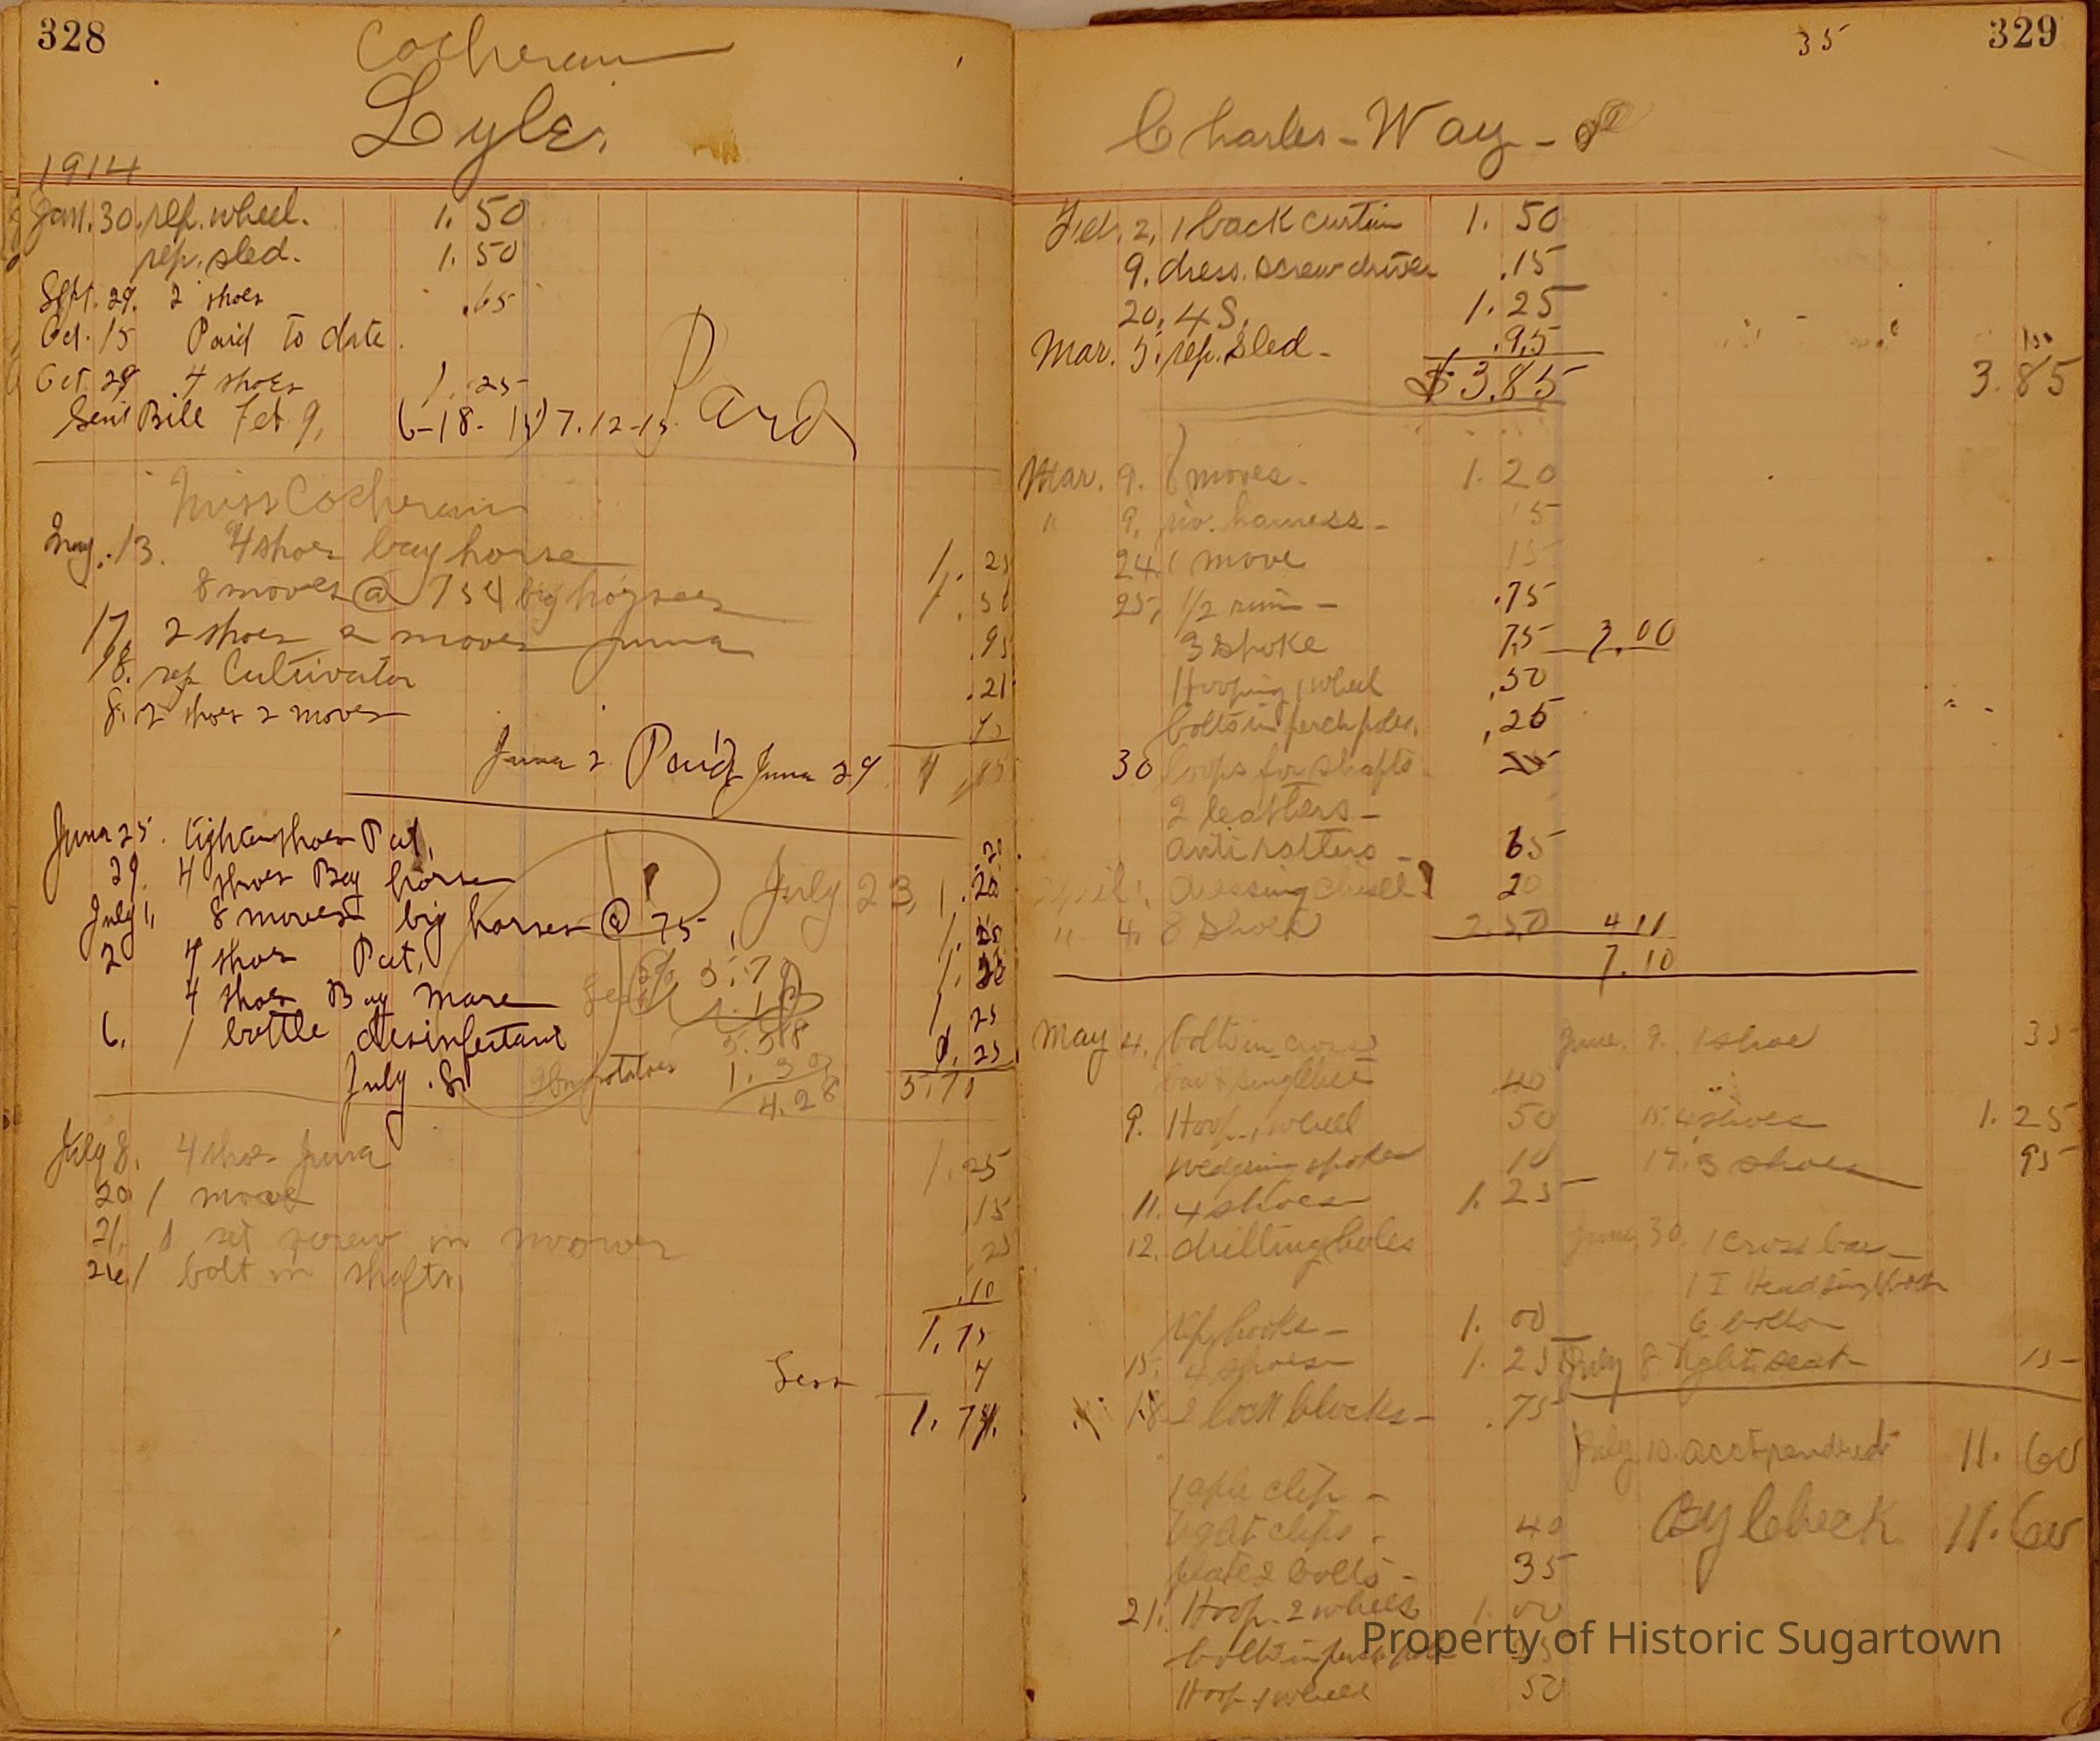 328
Cocheran
Lyle.
1914
Jan. 30. rep. wheel. 1.50
rep. sled. 1.50
Sept. 29. 2 shoes .65
Oct. 15 Paid to date.
Oct. 29 4 shoes 1.25
Sent Bill Feb 9, 6-18-15 7.12-15 Paid
Miss Cocheran
13. 4 shoes bay horse 1.25
8 moves @ 75 4 big horses 1.50
17. 2 shoes 2 moves Juna .95
18. rep Cultivator .21
8. 2 shoes 2 moves
June 2 Paid June 29 4.85
June 25. tighten shoes Pat, .20
29. 4 shoes Bay horse
July 23,
July 1, 8 moves big horses @ 75
2 4 shoes Pat,
5.78
4 shoes Bay mare 1.25
6. 1 bottle desinfectant .25
July 8 potatoes 1.30 5.78
4.28
July 8. 4 shoes Juna 1.25
20 1 move 15
21. 1 set screw in mower 25
26 1 bolt in shafts, .10
1.75
Less 4
1.71.
35 329
Charles - Way -
Feb. 2, 1 back curtin 1.50
9. dress. screw driver .15
20, 4 S. 1.25
Mar. 5. rep. sled - .95
$3.85 3.85
Mar. 9. 8 moves - 1.20
" 9. riv. harness - 15
24. 1 move 15
25, 1/2 rim - .75
3 spoke 75 3.00
Hooping 1 wheel .50
bolts in perch poles. .25
30 loops for shafts
2 leathers -
anti ratters - 65
April 1, dressing chisel 20
" 4. 8 shoes 2.50 4 11
7.10
May 4. bolts in cross June. 9. 1 shoe 35
bar & singletree 40
9. Hoop. 1 wheel 50 15. 4 shoes 1.25
wedging spokes 10 17. 3 shoes 95
11. 4 shoes 1.25
12. drilling holes June 30. 1 cross bar -
rep. hooks - 1.00 6 bolts
15. 4 shoes 1.25 July 8. tight. seat 15
18 2 lock blocks - .75
July 10. acct rendred 11.60
1 axle clip -
tight clips - 40 By Check 11.60
plate 2 bolts - 35
21. Hoop. 2 wheels 1.00
Property of Historic Sugartown
bolts in perch pole
Hoop. 1 wheel 50